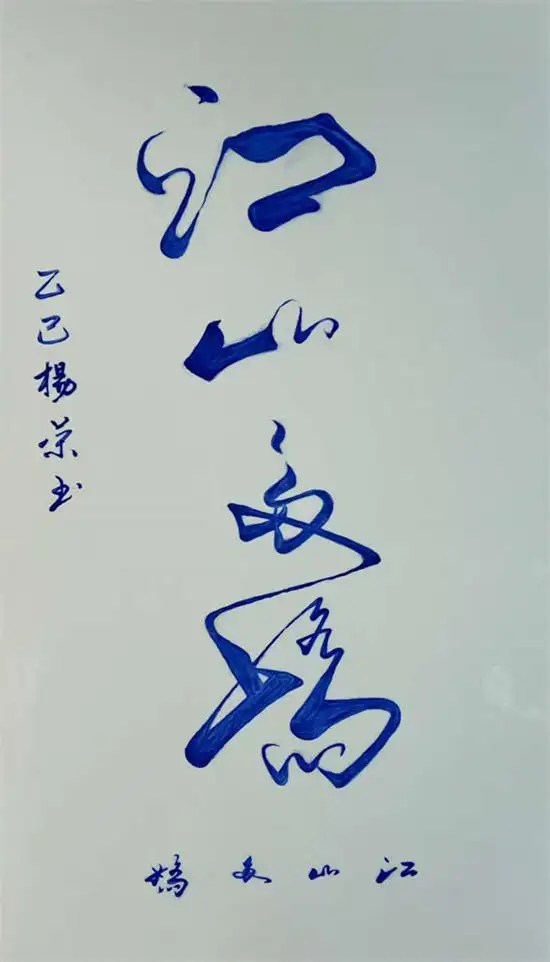 江山多嬌
乙巳楊榮書
江山多嬌